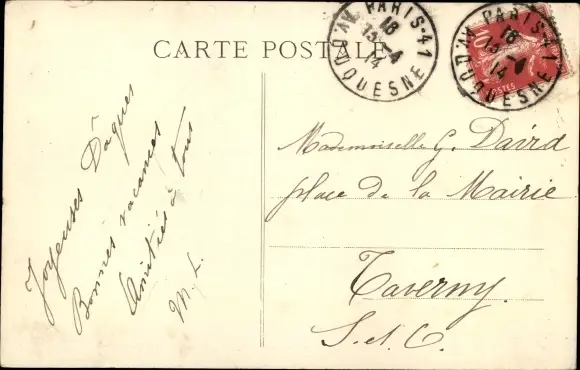 CARTE POSTALE
PARIS-41
18
13-4
14
AV. DUQUESNE
PARIS-41
18
13-4
14
AV. DUQUESNE
10
POSTES
Joyeuses Pâques
Bonnes vacances
Amitiés à tous
M. L.
Mademoiselle G. David
place de la Mairie
Taverny.
S. et O.